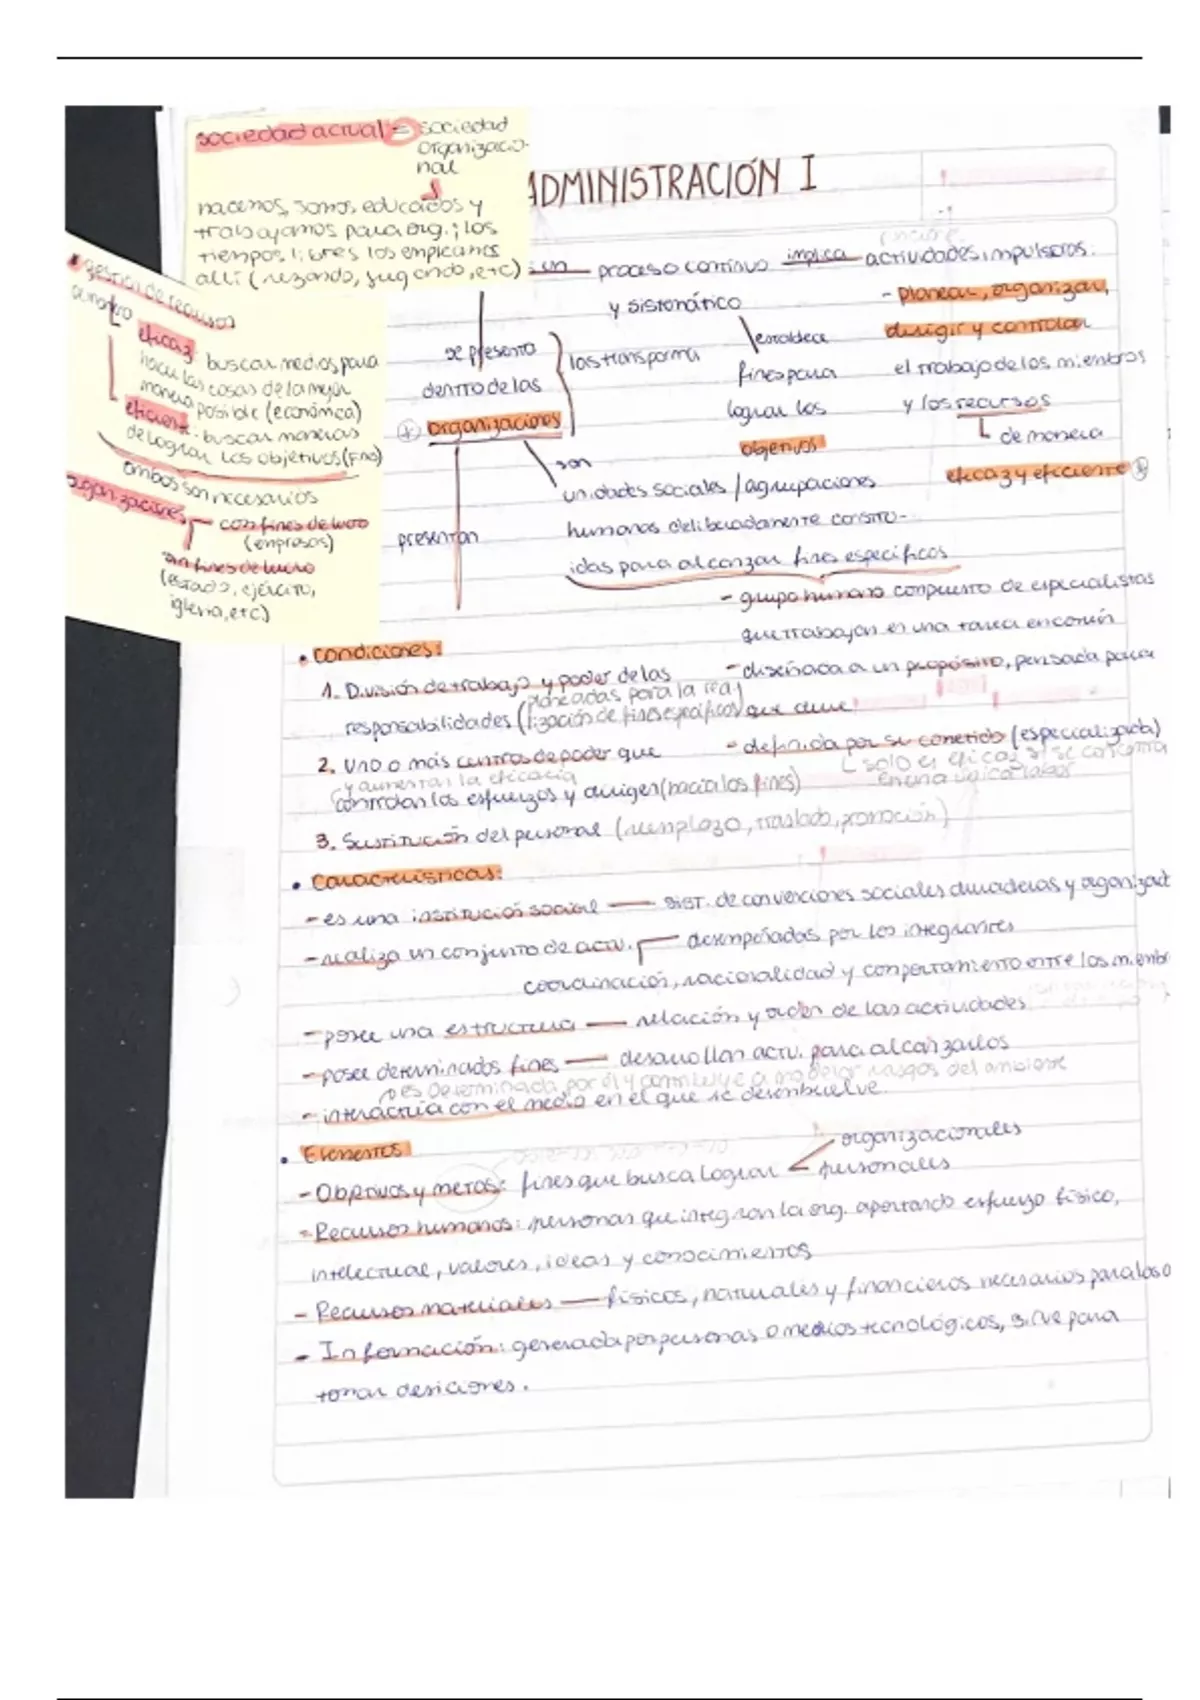 sociedad actual = sociedad
organizacio-
nal
nacemos, somos educados y
trabajamos para org.; los
tiempos libres los empleamos
allí (rezando, jugando, etc)
gestión de recursos
eficaz buscar medios para
hacer las cosas de la mejor
manera posible (económica)
eficiente: buscar maneras
de lograr los objetivos (fno)
ambos son necesarios
organizaciones
con fines de lucro
(empresas)
sin fines de lucro
(estado, ejército,
iglesia, etc)
ADMINISTRACIÓN I
un proceso continuo implica actividades impulsoras:
y sistemático
- planear, organizar,
dirigir y controlar
el trabajo de los miembros
y los recursos
de manera
eficaz y eficiente *
establece
fines para
lograr los
objetivos
se presenta
dentro de las
* organizaciones
las transforma
son
unidades sociales / agrupaciones
humanas deliberadamente constru-
idas para alcanzar fines específicos
presentan
- grupo humano compuesto de especialistas
que trabajan en una tarea en común
- diseñada a un propósito, pensada para
que dure
- definida por su cometido (especializada)
solo es eficaz si se concentra
en una única
• Condiciones:
1. División de trabajo y poder de las
responsabilidades (planeadas para la rea-
lización de fines específicos)
2. Uno o más centros de poder que
controlan los esfuerzos y dirigen (hacia los fines)
y aumentar la eficacia
3. Sustitución del personal (reemplazo, traslado, promoción)
• Características:
- es una institución social — sist. de convenciones sociales duraderas y organizad
- realiza un conjunto de activ. desempeñadas por los integrantes
coordinación, racionalidad y comportamiento entre los miembr
- posee una estructura — relación y orden de las actividades
- posee determinados fines — desarrollan activ. para alcanzarlos
es determinada por él y contribuye a modelar rasgos del ambiente
- interactúa con el medio en el que se desenvuelve.
• Elementos
- Objetivos y metas: fines que busca lograr
organizacionales
personales
- Recursos humanos: personas que integran la org. aportando esfuerzo físico,
intelectual, valores, ideas y conocimientos
- Recursos materiales — físicos, naturales y financieros necesarios para las o
- Información: generada por personas o medios tecnológicos, sirve para
tomar desiciones.